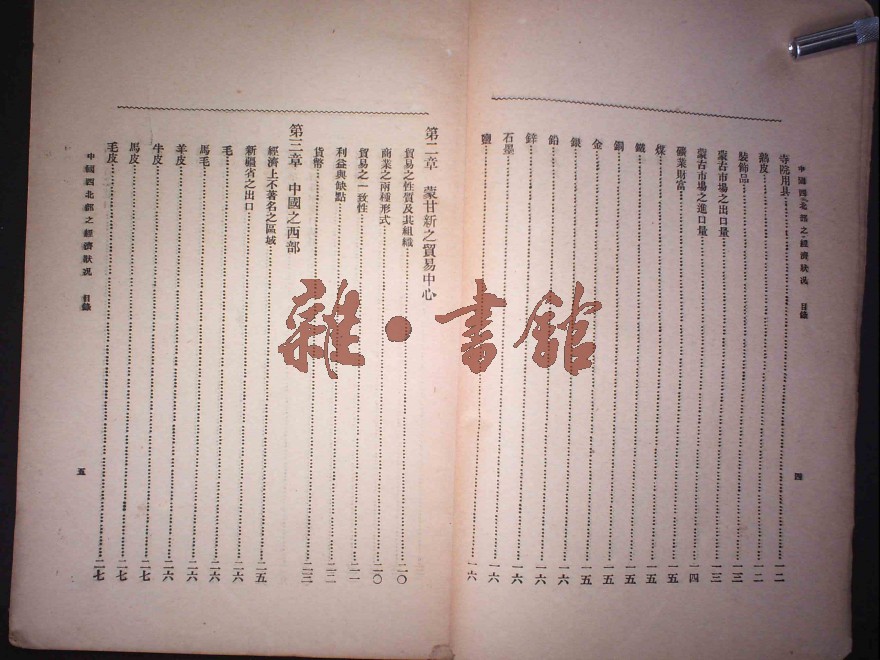 中國西北部之經濟狀況 目錄
寺院用具……一二
鵝皮……一二
裝飾品……一三
蒙古市場之出口量……一三
蒙古市場之進口量……一四
礦業財富……一五
煤……一五
鐵……一五
銅……一五
金……一五
銀……一六
鉛……一六
鋅……一六
石墨……一六
鹽……一六
四
第二章 蒙甘新之貿易中心
貿易之性質及其組織……二〇
商業之兩種形式……二〇
貿易之一致性……二一
利益與缺點……二二
貨幣……二三
第三章 中國之西部
經濟上不著名之區域……二五
新疆省之出口……二六
毛……二六
馬毛……二六
羊皮……二六
牛皮……二七
馬皮……二七
毛皮……二七
中國西北部之經濟狀況 目錄
五
雜·書館